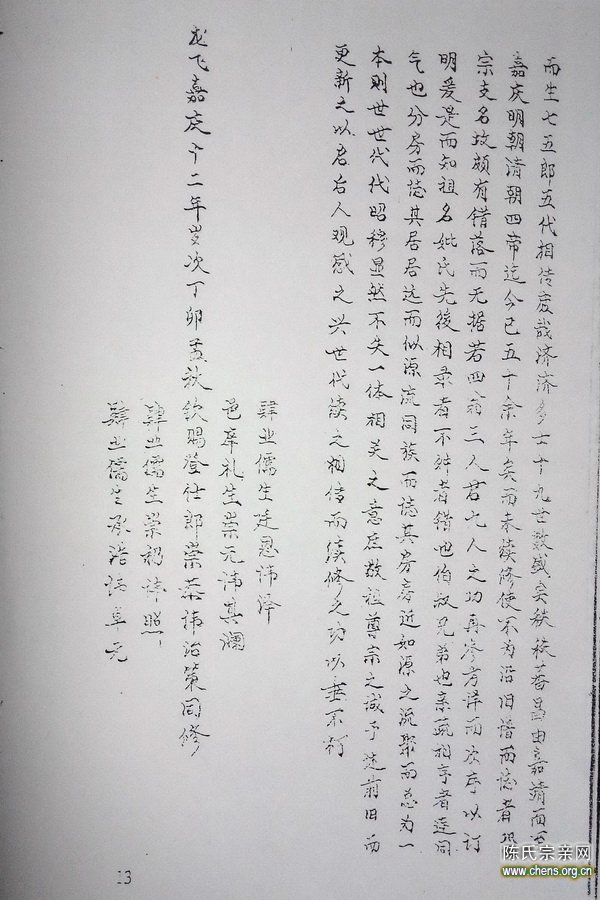 而生七五郎五代相传度哉济济多士十九世数盛矣秩秩蕃昌由嘉靖而万
嘉庆明朝清朝四帝迄今已五十余年矣而未续修使不为沿旧谱而志者
宗支名坟颇有错落而无据若四翁三人君七人之功再参考详而次序以订
明爰是而知祖名妣氏先後相承者不殊者错也伯叔兄弟也亲疏相序者连同
气也分房而志其居居远而似源流同族而志其房房近如源之流聚而总为一
本则世世代代昭穆显然不失一体相关之意庶敬祖尊宗之诚予是前旧而
更新之以启后人观感之兴世代续之相传而续修之功以垂不朽
龙飞嘉庆十二年岁次丁卯孟秋钦赐登仕郎崇荣讳治策同修
肄业儒生廷恩讳泽
邑庠礼生崇元讳其澜
肄业儒生崇礽讳照
肄业儒生承浩讳章元
13
陈氏宗亲网
www.chens.org.cn